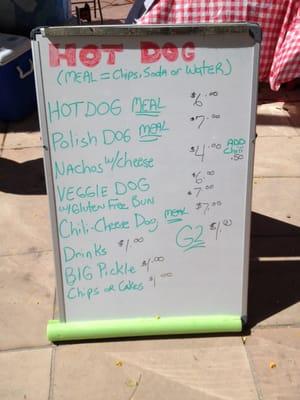 HOT DOG
(MEAL = Chips, Soda or Water)
HOT DOG MEAL $6.00
Polish DOG MEAL $7.00
Nachos w/cheese $4.00 ADD Chili .50
VEGGIE DOG $6.00
w/Gluten Free Bun $7.00
Chili-Cheese Dog, MEAL $7.00
Drinks $1.00 G2 $1.00
BIG Pickle $1.00
Chips or Cakes $1.00